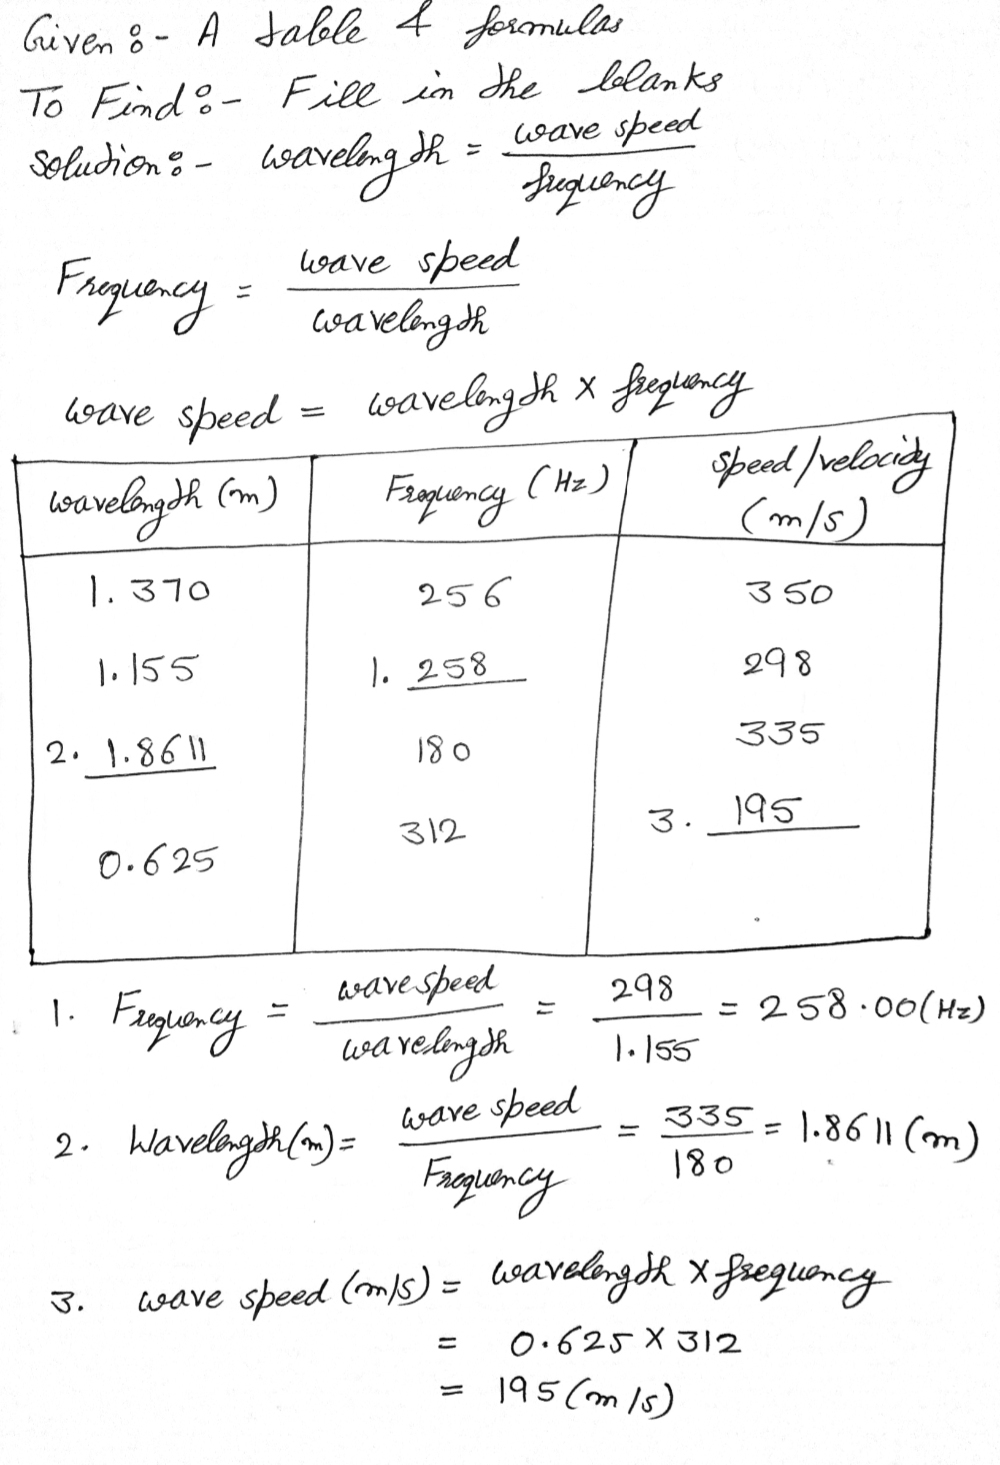 Given :- A table & formulas
To Find :- Fill in the blanks
Solution :- wavelength = wave speed / frequency
Frequency = wave speed / wavelength
wave speed = wavelength x frequency
wavelength (m) Frequency (Hz) speed/velocity (m/s)
1.370 256 350
1.155 1. 258 298
2. 1.8611 180 335
0.625 312 3. 195
1. Frequency = wave speed / wavelength = 298 / 1.155 = 258.00 (Hz)
2. Wavelength (m) = wave speed / Frequency = 335 / 180 = 1.8611 (m)
3. wave speed (m/s) = wavelength x frequency
= 0.625 x 312
= 195 (m/s)